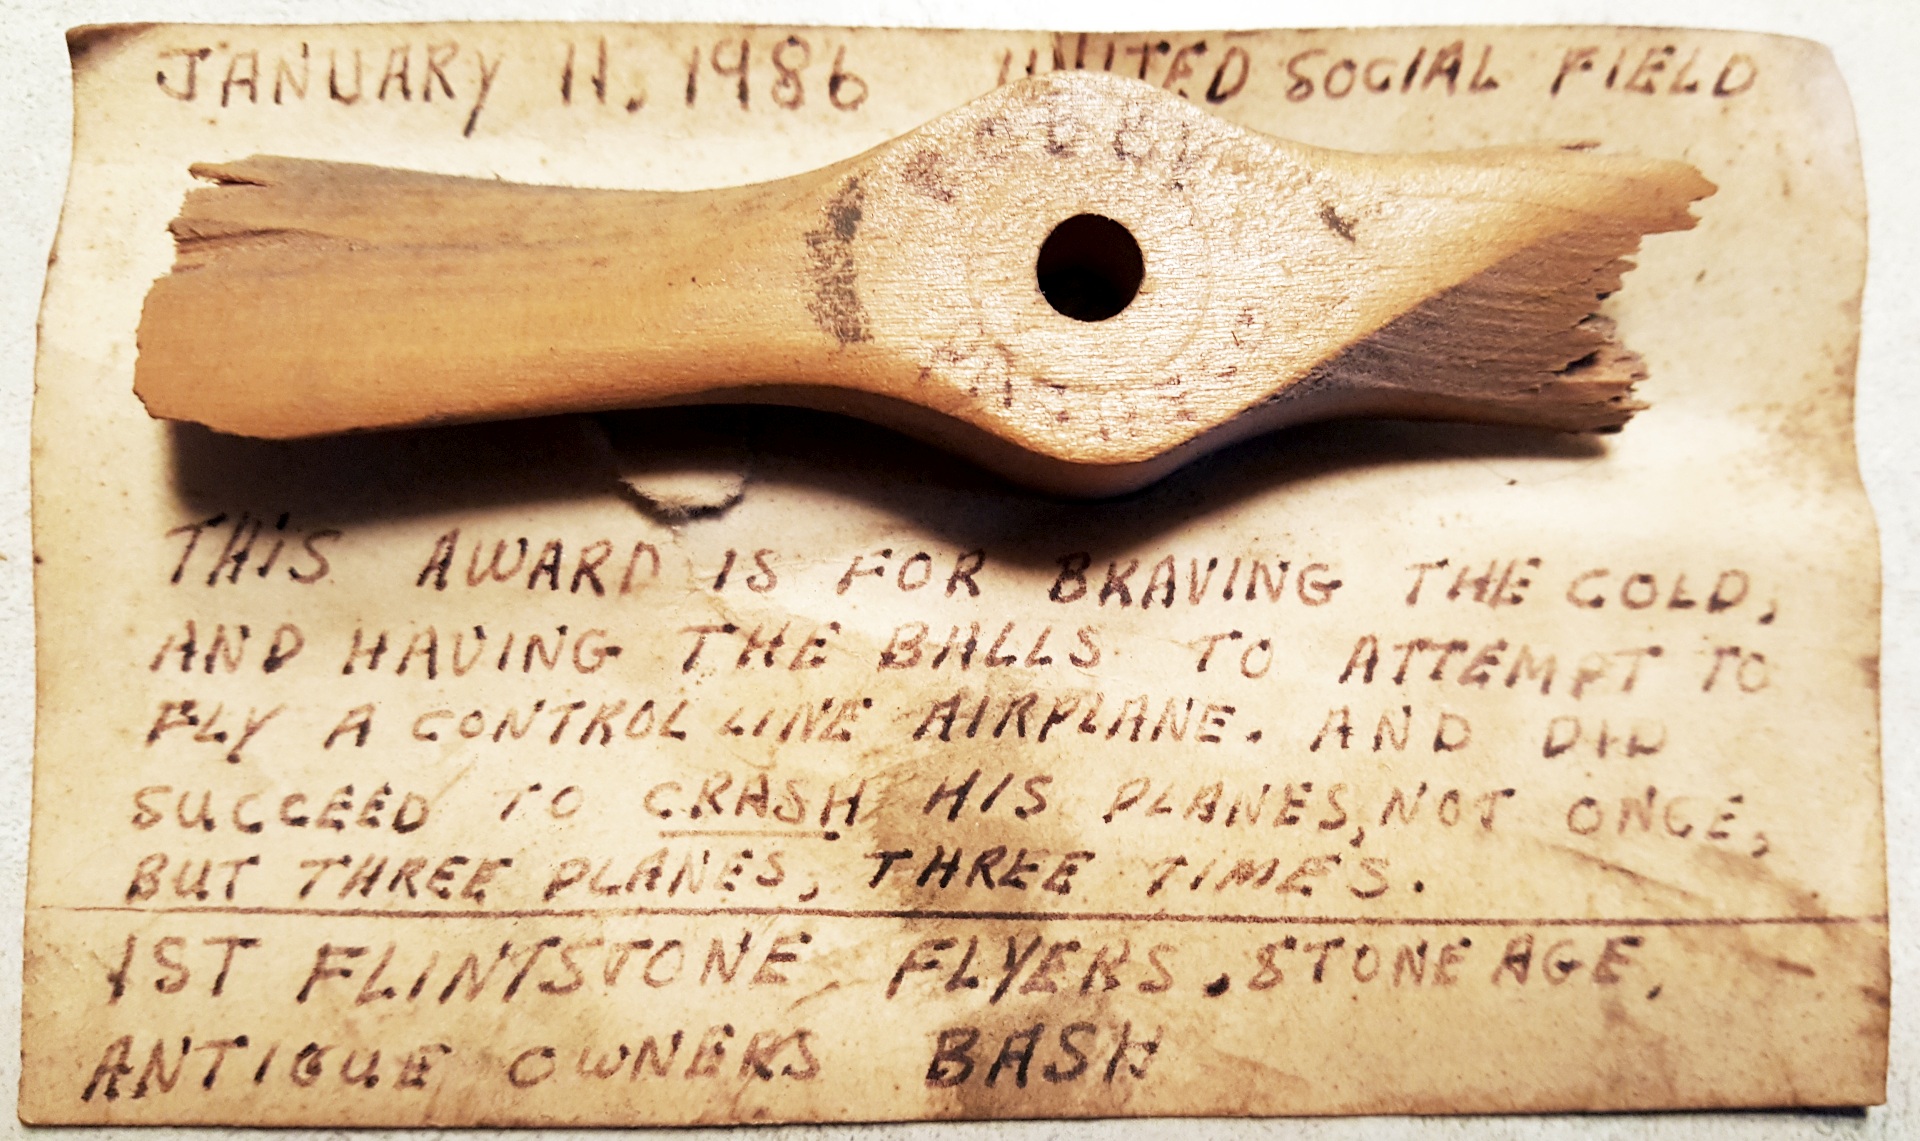 JANUARY 11, 1986 UNITED SOCIAL FIELD
THIS AWARD IS FOR BRAVING THE COLD,
AND HAVING THE BALLS TO ATTEMPT TO
FLY A CONTROL LINE AIRPLANE. AND DID
SUCCEED TO CRASH HIS PLANES, NOT ONCE,
BUT THREE PLANES, THREE TIMES.
1ST FLINTSTONE FLYERS, STONE AGE,
ANTIQUE OWNERS BASH